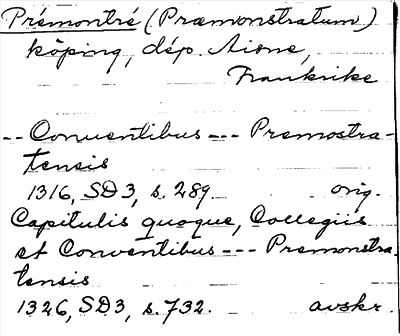 Prémontré (Præmonstratum)
köping, dép. Aisne,
Frankrike
-- Conventibus --- Premostra-
tensis
1316, SD 3, s. 289 orig.
Capitulis quoque, Collegiis
et Conventibus --- Premonstra-
tensis
1326, SD 3, s. 732. avskr.